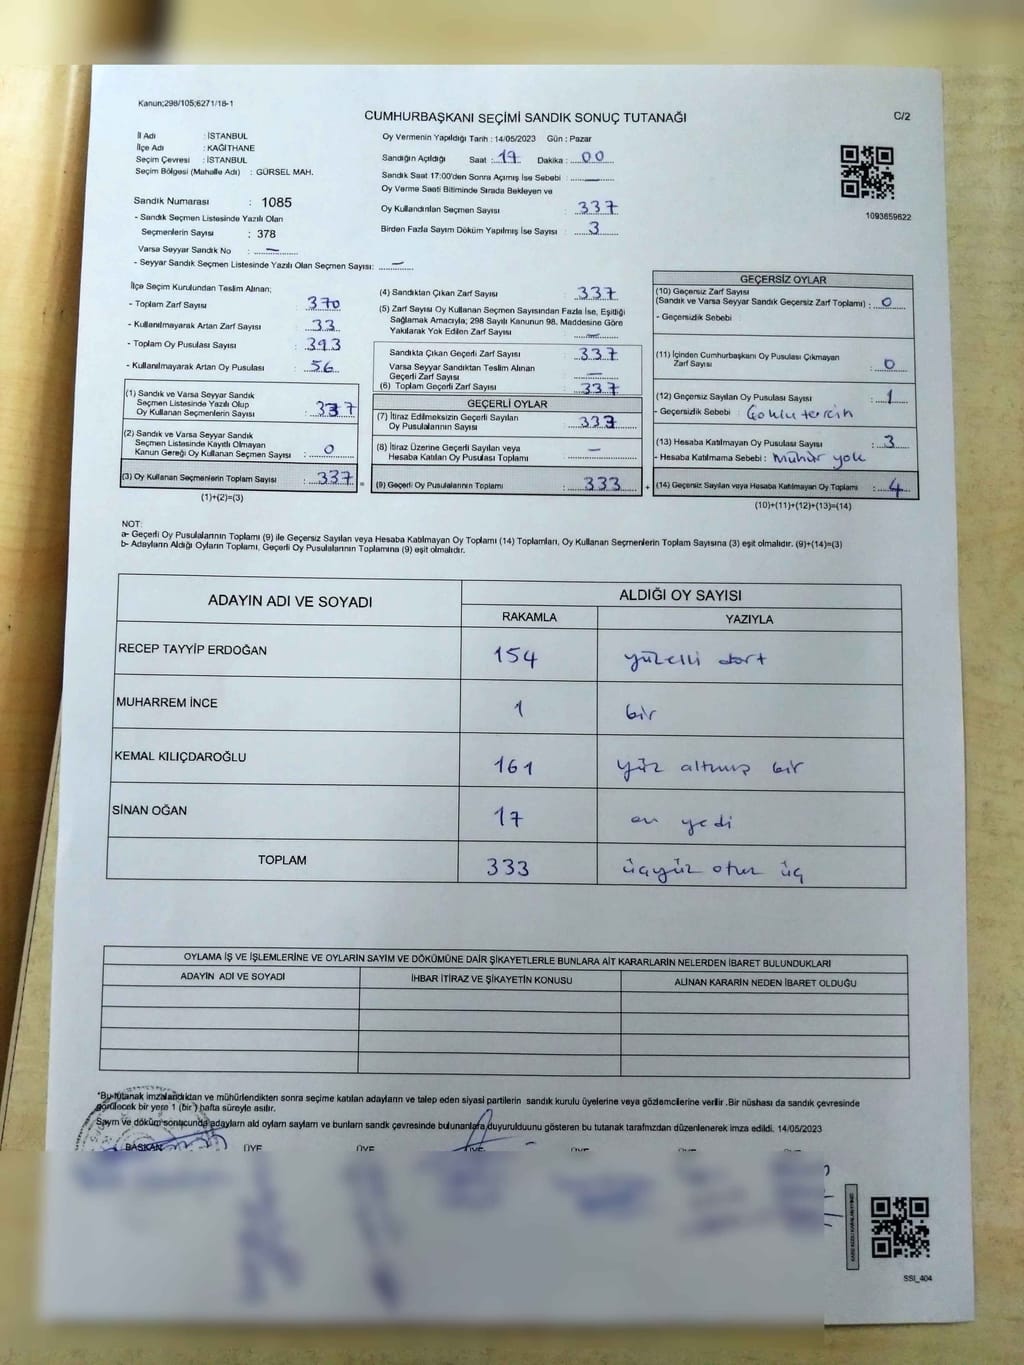 Kanun;298/105;6271/18-1
CUMHURBAŞKANI SEÇİMİ SANDIK SONUÇ TUTANAĞI
C/2
İl Adı : İSTANBUL
İlçe Adı : KAĞITHANE
Seçim Çevresi : İSTANBUL
Seçim Bölgesi (Mahalle Adı) : GÜRSEL MAH.
Sandık Numarası : 1085
- Sandık Seçmen Listesinde Yazılı Olan
Seçmenlerin Sayısı : 378
Varsa Seyyar Sandık No : —
- Seyyar Sandık Seçmen Listesinde Yazılı Olan Seçmen Sayısı: —
Oy Vermenin Yapıldığı Tarih : 14/05/2023 Gün : Pazar
Sandığın Açıldığı Saat : 17 Dakika : 00
Sandık Saat 17:00'den Sonra Açımış İse Sebebi : —
Oy Verme Saati Bitiminde Sırada Bekleyen ve
Oy Kullandırılan Seçmen Sayısı : 337
Birden Fazla Sayım Döküm Yapılmış İse Sayısı : 3
1093659622
İlçe Seçim Kurulundan Teslim Alınan;
- Toplam Zarf Sayısı : 370
- Kullanılmayarak Artan Zarf Sayısı : 33
- Toplam Oy Pusulası Sayısı : 393
- Kullanılmayarak Artan Oy Pusulası : 56
(1) Sandık ve Varsa Seyyar Sandık
Seçmen Listesinde Yazılı Olup
Oy Kullanan Seçmenlerin Sayısı : 337
(2) Sandık ve Varsa Seyyar Sandık
Seçmen Listesinde Kayıtlı Olmayan
Kanun Gereği Oy Kullanan Seçmen Sayısı : 0
(3) Oy Kullanan Seçmenlerin Toplam Sayısı : 337
(1)+(2)=(3)
(4) Sandıktan Çıkan Zarf Sayısı : 337
(5) Zarf Sayısı Oy Kullanan Seçmen Sayısından Fazla İse, Eşitliği
Sağlamak Amacıyla; 298 Sayılı Kanunun 98. Maddesine Göre
Yakılarak Yok Edilen Zarf Sayısı : —
Sandıkta Çıkan Geçerli Zarf Sayısı : 337
Varsa Seyyar Sandıktan Teslim Alınan
Geçerli Zarf Sayısı : —
(6) Toplam Geçerli Zarf Sayısı : 337
GEÇERLİ OYLAR
(7) İtiraz Edilmeksizin Geçerli Sayılan
Oy Pusulalarının Sayısı : 333
(8) İtiraz Üzerine Geçerli Sayılan veya
Hesaba Katılan Oy Pusulası Toplamı : —
= (9) Geçerli Oy Pusulalarının Toplamı : 333
GEÇERSİZ OYLAR
(10) Geçersiz Zarf Sayısı
(Sandık ve Varsa Seyyar Sandık Geçersiz Zarf Toplamı) : 0
- Geçersizlik Sebebi
(11) İçinden Cumhurbaşkanı Oy Pusulası Çıkmayan
Zarf Sayısı : 0
(12) Geçersiz Sayılan Oy Pusulası Sayısı : 1
- Geçersizlik Sebebi : Çoklu tercih
(13) Hesaba Katılmayan Oy Pusulası Sayısı : 3
- Hesaba Katılmama Sebebi : Mühür yok
+ (14) Geçersiz Sayılan veya Hesaba Katılmayan Oy Toplamı : 4
(10)+(11)+(12)+(13)=(14)
NOT:
a- Geçerli Oy Pusulalarının Toplamı (9) ile Geçersiz Sayılan veya Hesaba Katılmayan Oy Toplamı (14) Toplamları, Oy Kullanan Seçmenlerin Toplam Sayısına (3) eşit olmalıdır. (9)+(14)=(3)
b- Adayların Aldığı Oyların Toplamı, Geçerli Oy Pusulalarının Toplamına (9) eşit olmalıdır.
ADAYIN ADI VE SOYADI
ALDIĞI OY SAYISI
RAKAMLA YAZIYLA
RECEP TAYYİP ERDOĞAN 154 yüzelli dört
MUHARREM İNCE 1 bir
KEMAL KILIÇDAROĞLU 161 yüz altmış bir
SİNAN OĞAN 17 on yedi
TOPLAM 333 üçyüz otuz üç
OYLAMA İŞ VE İŞLEMLERİNE VE OYLARIN SAYIM VE DÖKÜMÜNE DAİR ŞİKAYETLERLE BUNLARA AİT KARARLARIN NELERDEN İBARET BULUNDUKLARI
ADAYIN ADI VE SOYADI İHBAR İTİRAZ VE ŞİKAYETİN KONUSU ALINAN KARARIN NEDEN İBARET OLDUĞU
*Bu tutanak imzalandıktan ve mühürlendikten sonra seçime katılan adayların ve talep eden siyasi partilerin sandık kurulu üyelerine veya gözlemcilerine verilir .Bir nüshası da sandık çevresinde
görülecek bir yere 1 (bir ) hafta süreyle asılır.
Sayım ve döküm sonucunda adayların ald oyların sayların ve bunların sandk çevresinde bulunanlara duyurulduunu gösteren bu tutanak tarafımzdan düzenlenerek imza edildi. 14/05/2023
BAŞKAN ÜYE ÜYE ÜYE ÜYE ÜYE ÜYE
SSI_404